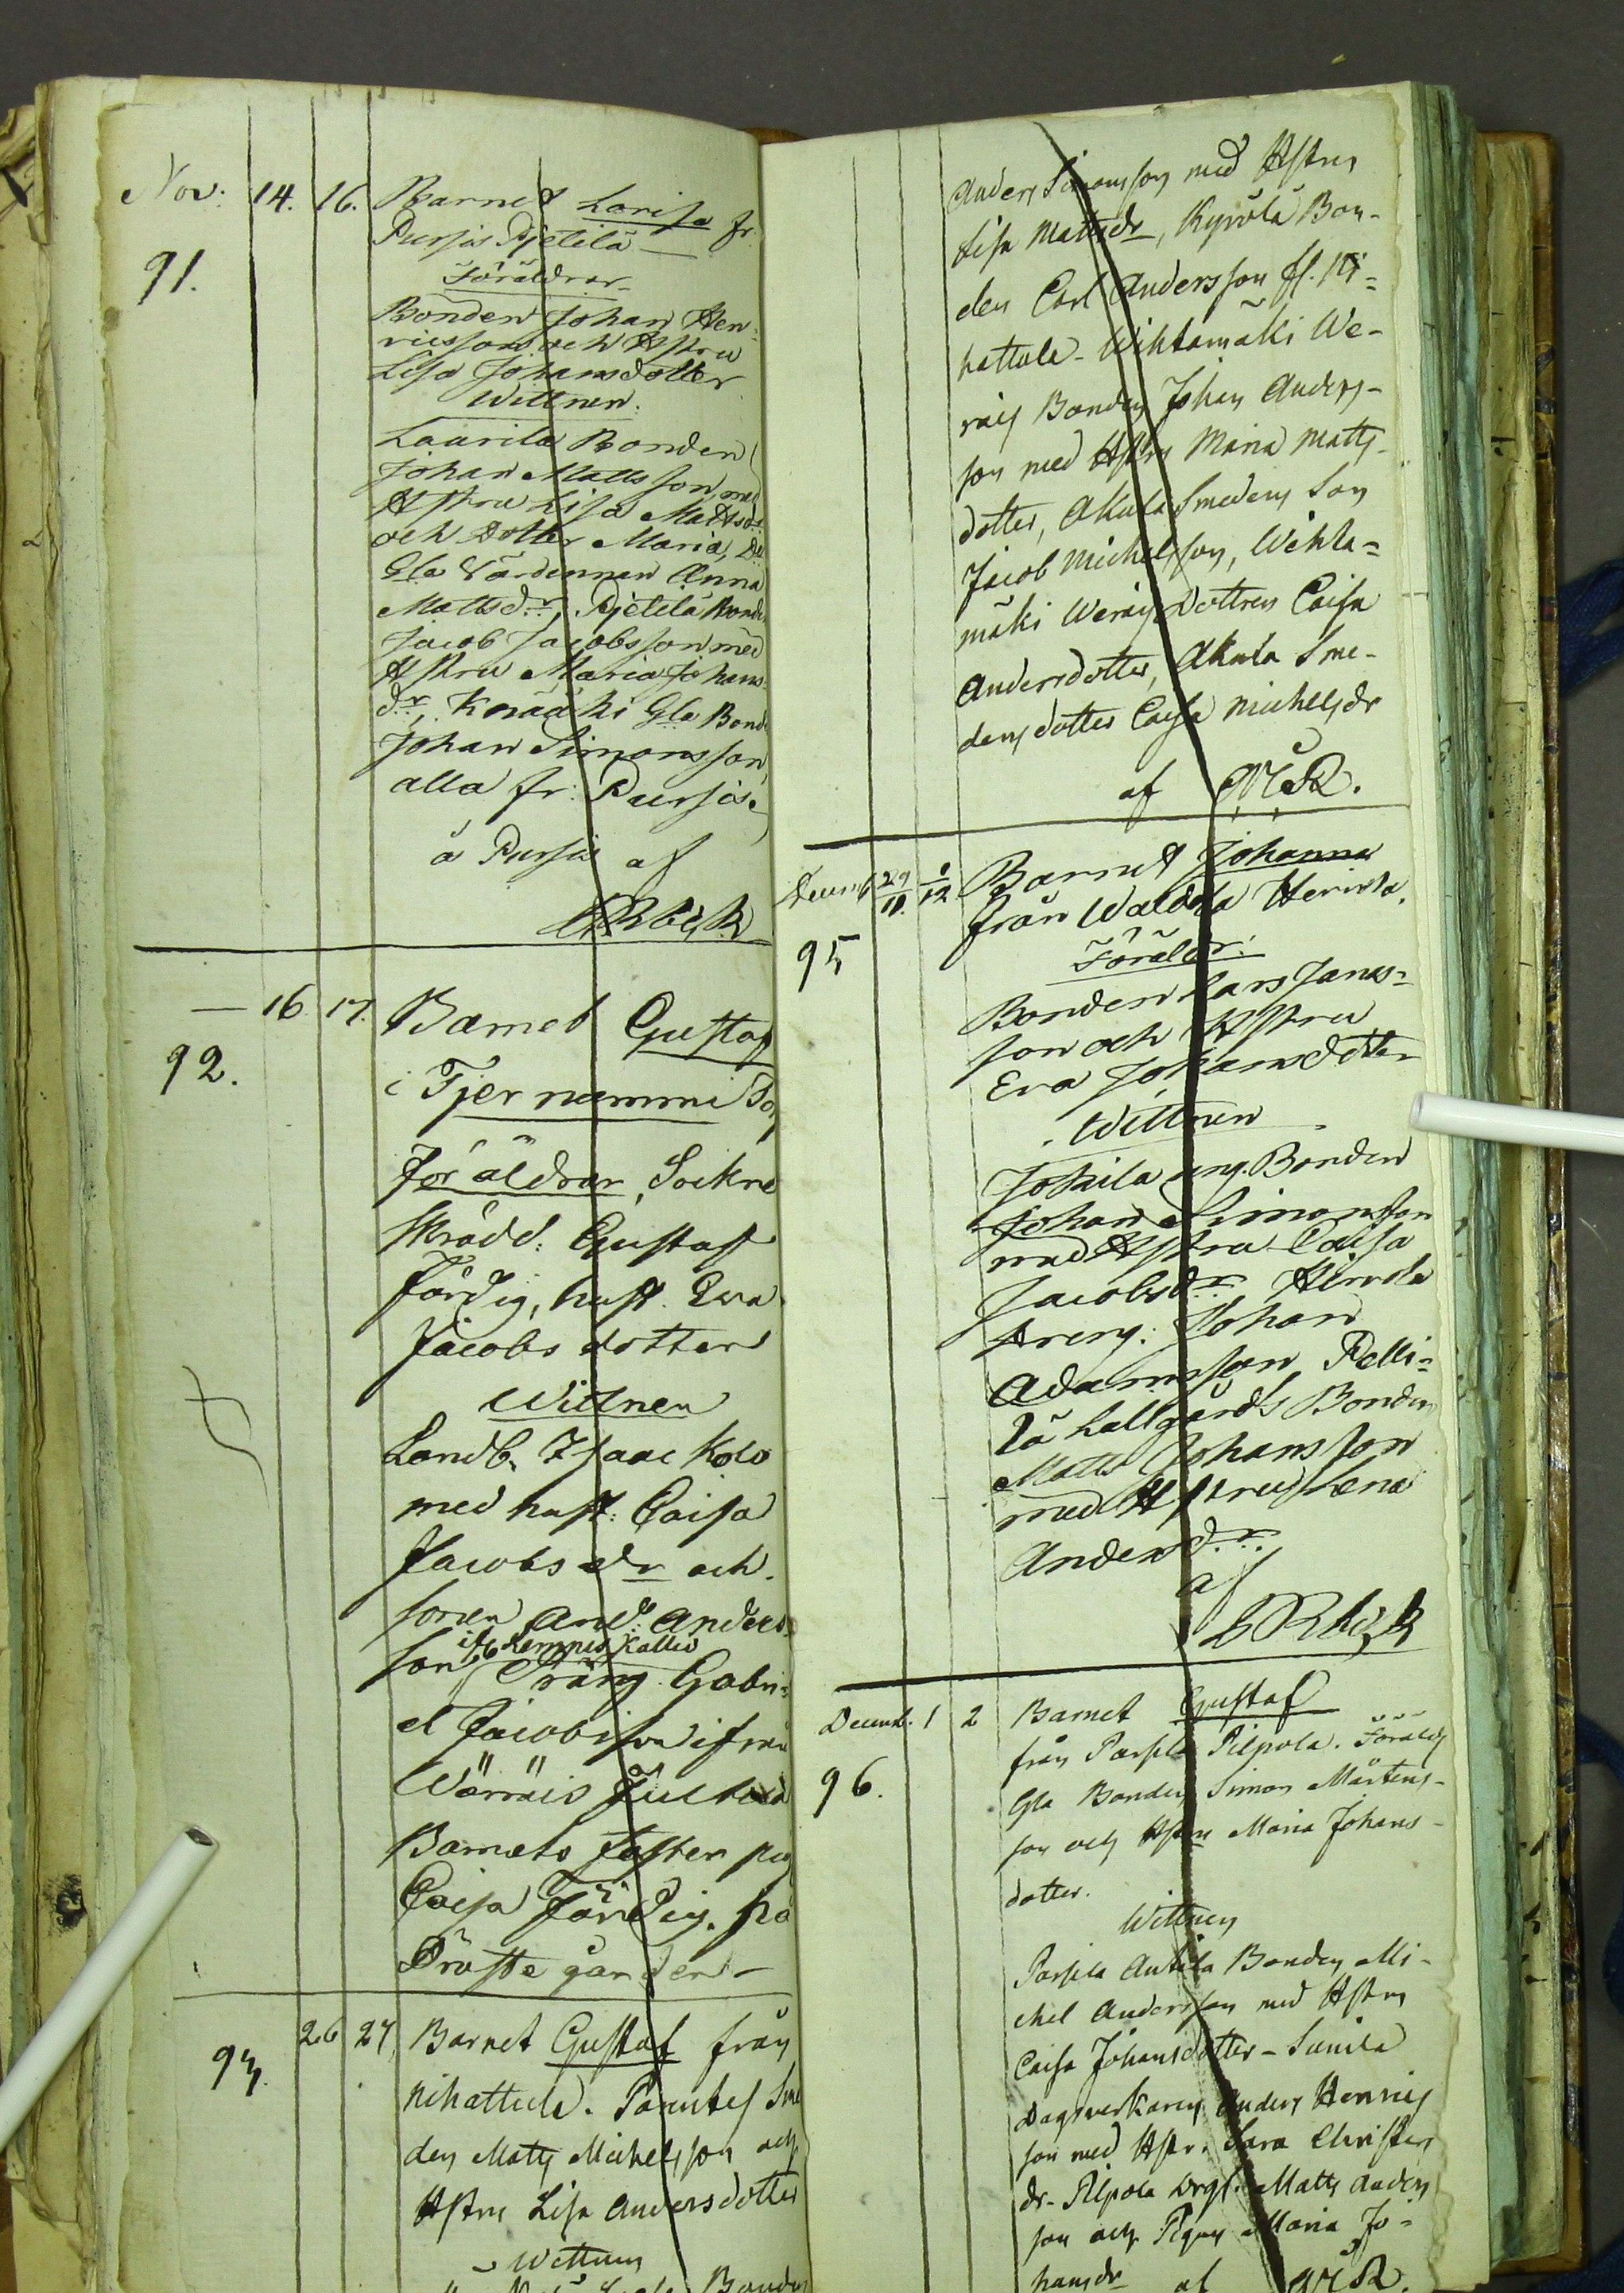 Nov: 14. 16. Barnet Lovisa fr.
91. Pursis Pjetilä
Föräldrar
Bonden Johan Hen-
ricsson och Hstru
Lisa Johansdotter
Wittnen.
Laurila Bonden
Johan Matts son med
Hstru Lisa Mattsdr
och Dotter Maria,
Gla Värdinnan Anna
Mattsdr, Pjetilä Bond
Jacob Jacobsson med
Hstru Maria Johans
dr, Knääki Gla Bond
Johan Simonsson,
alla fr: Pursis.
å Pursis af
— 16 17. Barnet Gustaf
92. i Tjernummi
föräldrar, Sockne
skrädd: Gustaf
Färdig, hust. Eva
Jacobs dotter
Wittnen
Landb. Isaac Kolo
med hust: Caisa
Jacobs dr och
sonen And: Anders
son, if Lempis Kallio
Dräng Gabri-
el Jacobsson ifrån
Wärräis
Barnets faster pig
Caisa Färdig. på
Proste gården
26 27 Barnet Gustaf från
93. Nihattula. Parentes Sme
den Matts Michelsson och
Hstru Lisa Andersdotter
Wittnen
Bonden
Anders Simonsson med Hstru
Lisa Mattsdr, Kyrölä Bon-
den Carl Andersson fr. Ni-
hattula - Wihtamäki We-
räis Bonden Johan Anders-
son med Hstru Maria Matts
dotter, Akula Smedens Son
Jacob Michelsson, Wihta=
mäki Weräis Dottren Caisa
Andersdotter, Akula Sme-
dens dotter Caisa Michelsdr
af
Decemb 29/11. 1/12 Barnet Johanna
95 från Waldola Heinola.
Föräldr:
Bonden Lars Jonas-
son och Hstru
Eva Johansdotter
Wittnen
Johan Simonsson
med Hstru Caisa
Jacobsdr
dreng: Johan
Adamsson Pelli-
lä hallgårds Bonden
Matts Johansson
med Hstru Lena
Andersdr
af
Decemb. 1 2 Barnet Gustaf
96. från Parsila Pilpola. Föräldr
Gla Bonden Simon Mårtens-
son och Hstru Maria Johans-
dotter.
Wittnen
Parsila Antila Bonden Mi-
chel Andersson med Hstru
Caisa Johansdotter - Sunila
Dagsverkaren Anders Henrics
son med Hstr. Sara Christers
dr - Pilpola Drgl. Matts Anders
son och Pigan Maria Jo-
hansdr af